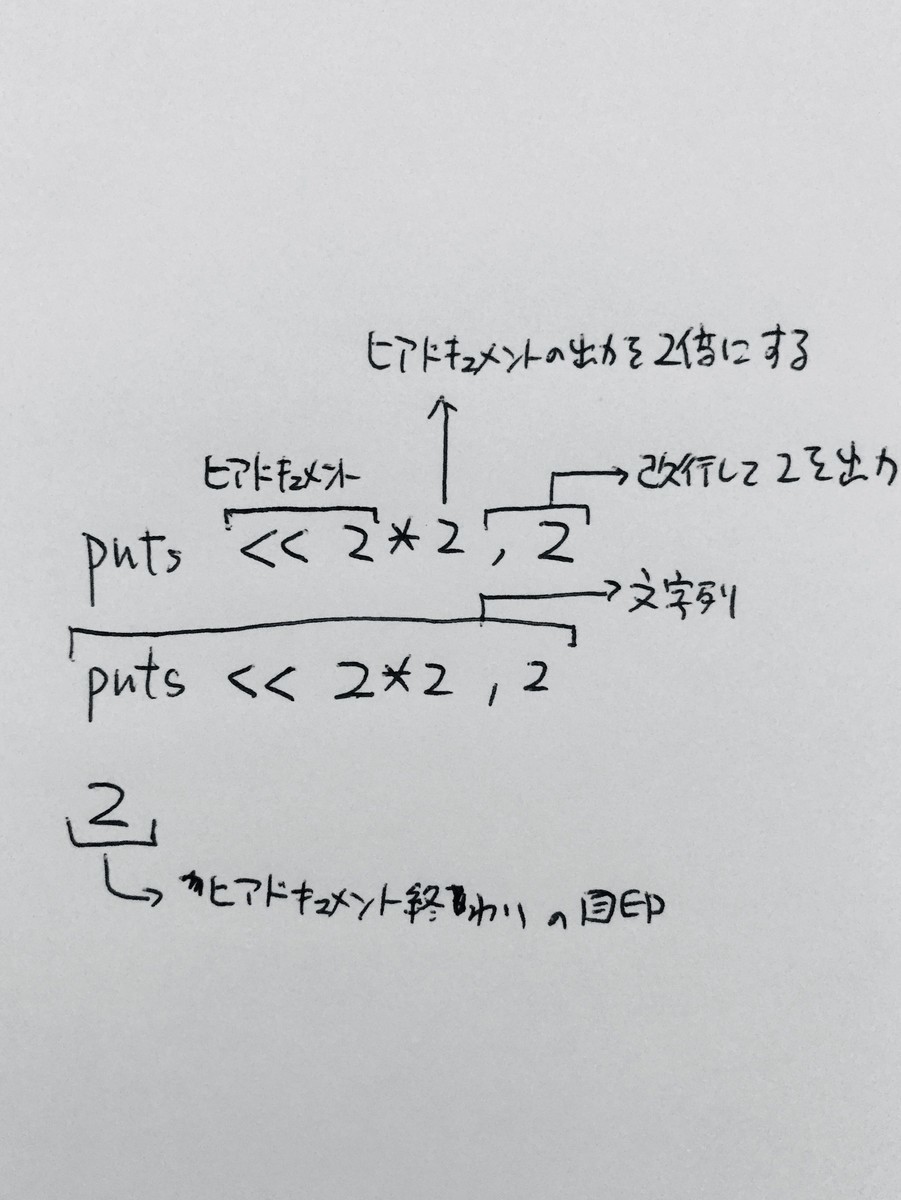 ヒアドキュメントの出力を2倍にする
ヒアドキュメント
改行して2を出力
puts << 2*2 , 2
文字列
puts << 2*2 , 2
2
ヒアドキュメント終わりの目印